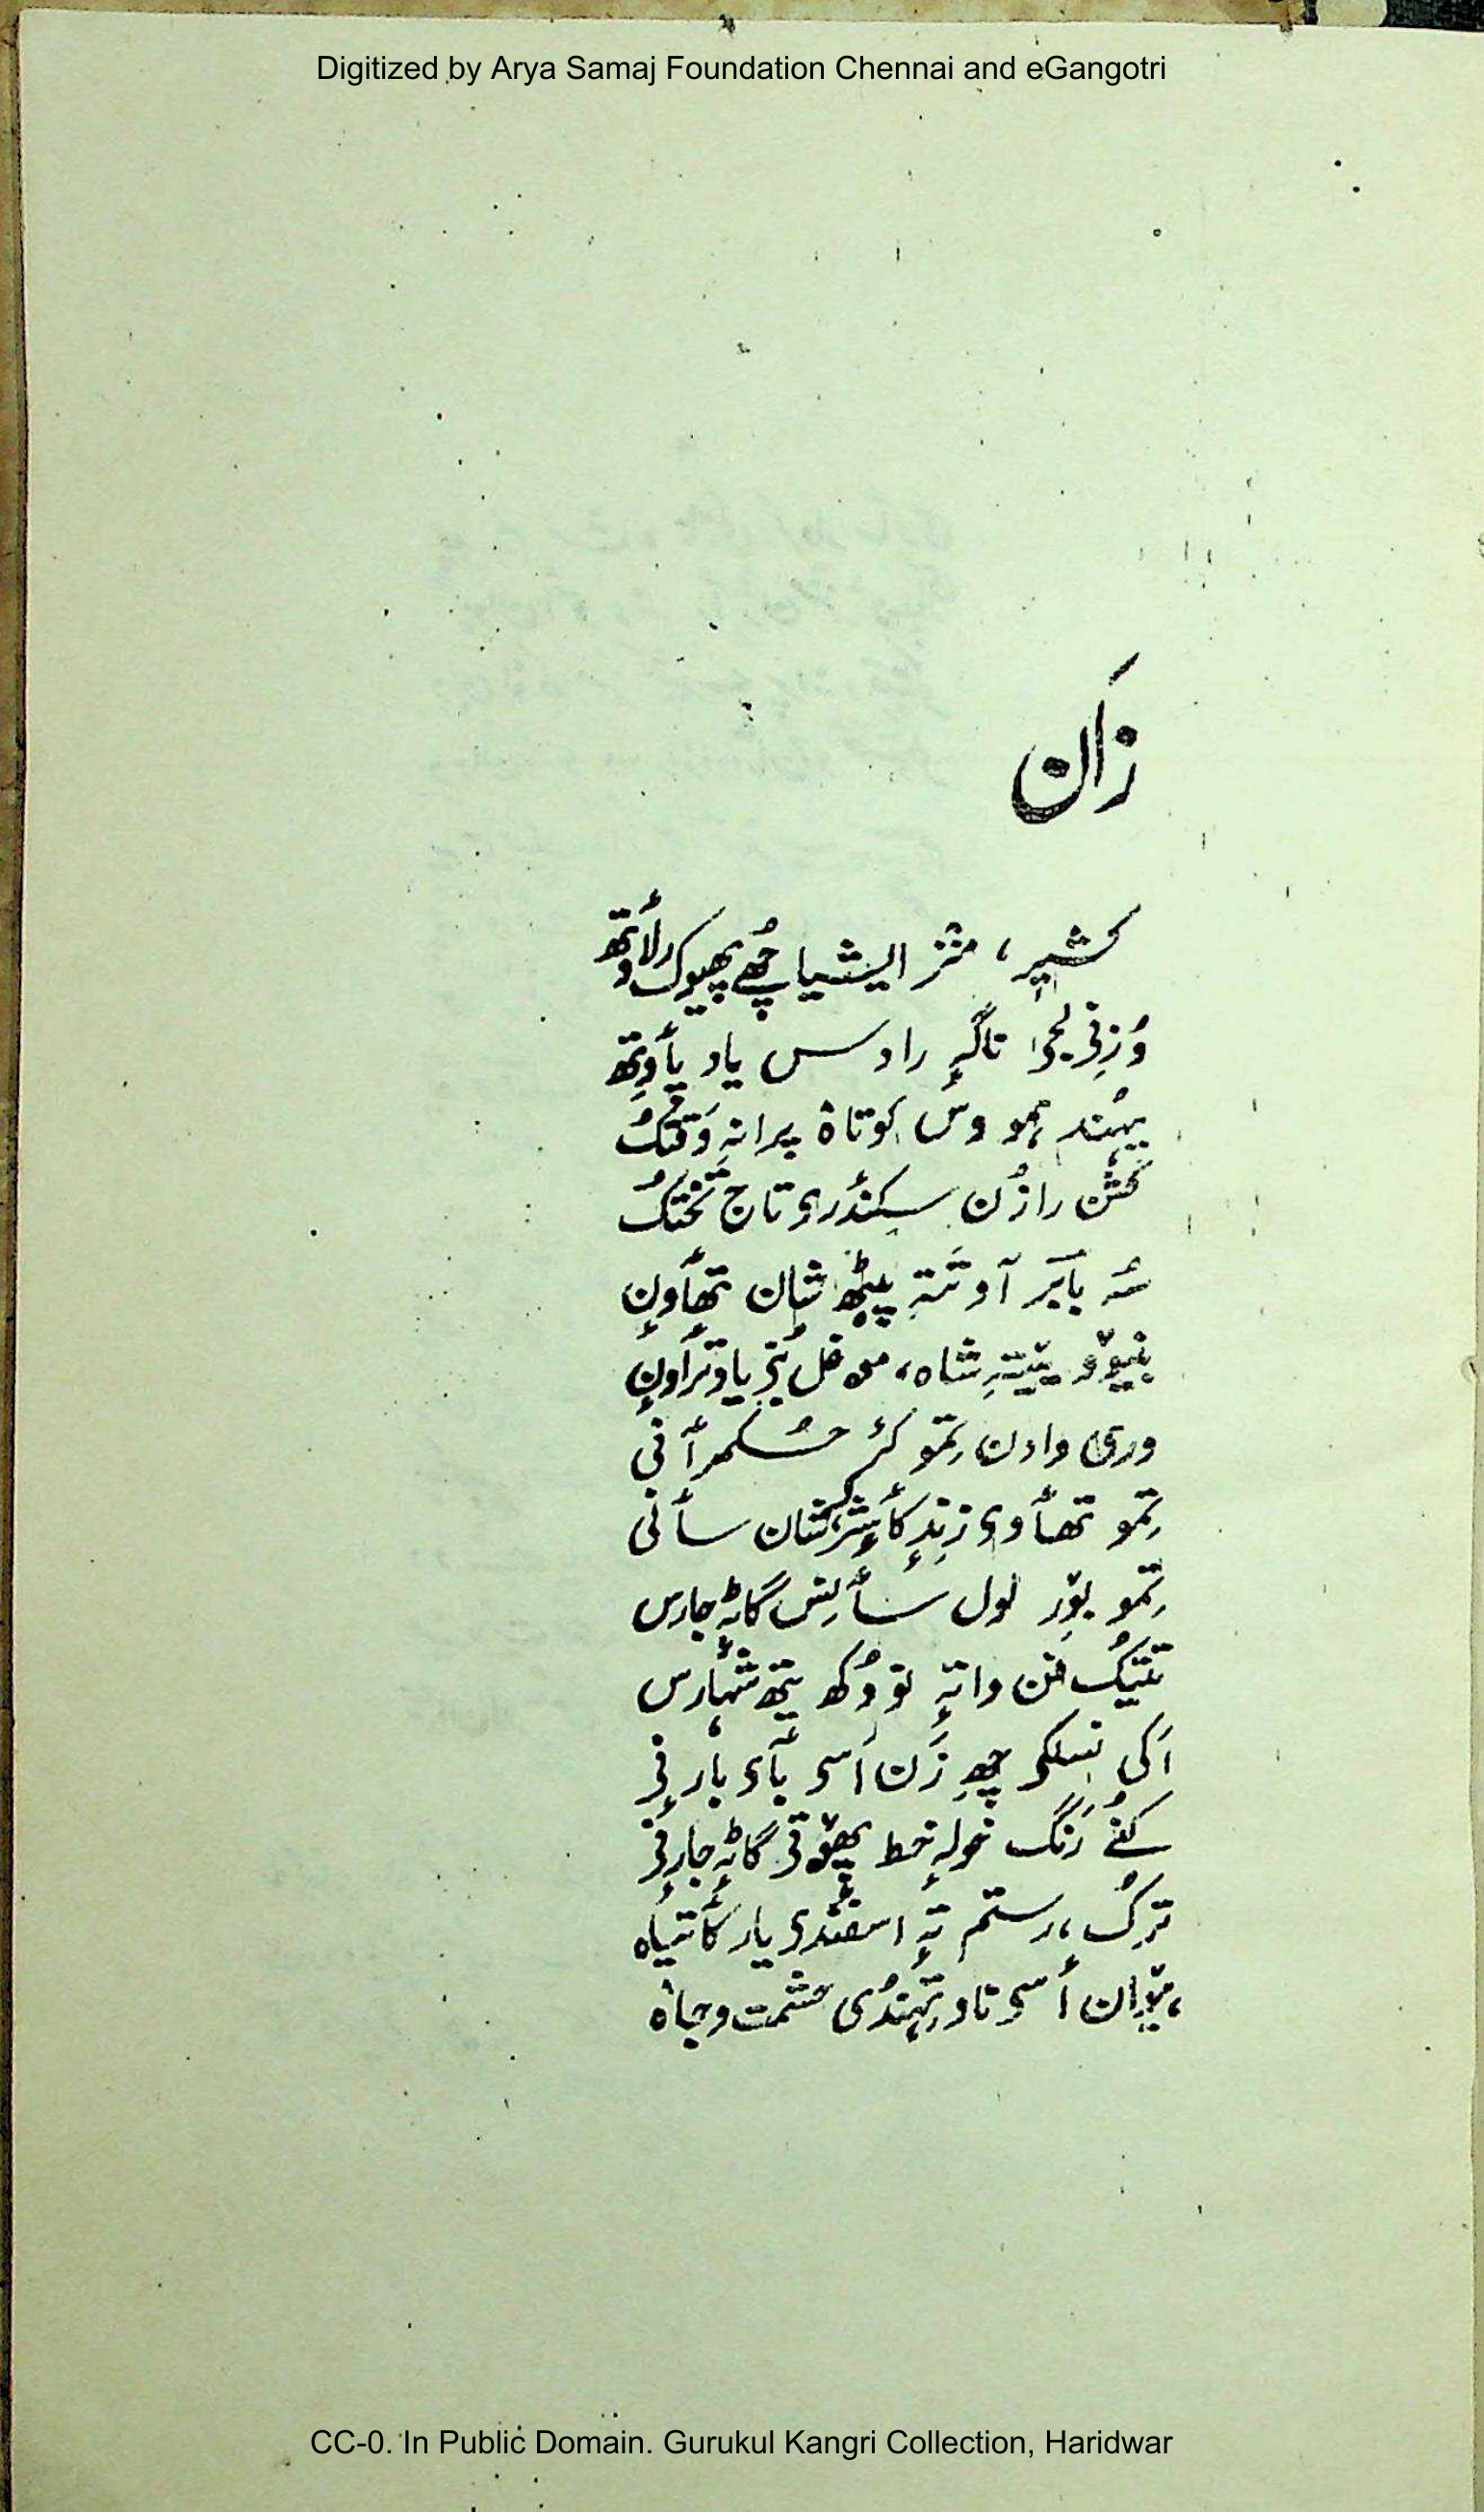 Digitized by Arya Samaj Foundation Chennai and eGangotri
زان
کشیر، منز ایشیا چھُے پھیوک رلأوتھ
وُزِنی لجوا تاگہِ رادس یاد پأوِتھ
یہُند ہمو وس کوتاہ پرانہِ وَقتُک
کُشن رازُن سکندٔری تاج تختُک
سُہ بابَر آو تَتہِ پیٹھ شان تھأوِن
شاہ، موغل یاد ترأوِن
وری وادن تِمو کٔر حُکمرأنی
تِمو تھأوی زِندٕ کأشِر سأنی
تِمو لول سأرِس گاٹہٕ جارس
تتیُک فن واتہٕ نوودُکھ یَتھ شہارس
اَکی نسلکی چھِ زَن أسی بأے بارنی
کُنُے رَنگ خولہٕ خط گاٹہٕ جارنی
تُرک، رستم تہٕ اسفندی یار کأتیاہ
أسی ناو تِہُندُی حشمت و جاہ
CC-0. In Public Domain. Gurukul Kangri Collection, Haridwar